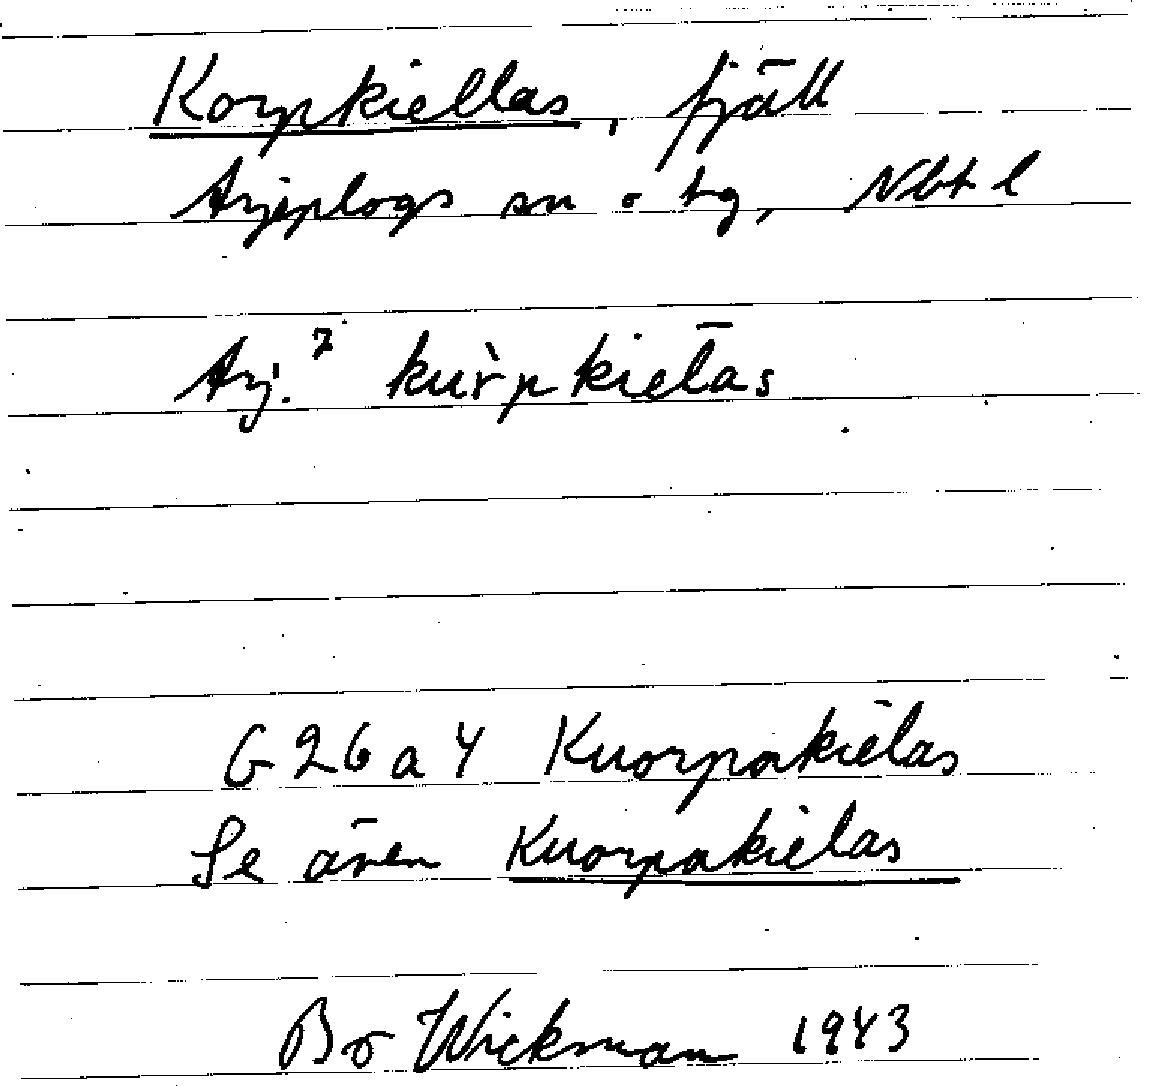 Korpkiellas, fjäll
Arjeplogs sn o tg, Nbt l
Arj.² kur̀pkielās
G 26 a 4 Kuorpakielas
Se även Kuorpakielas
Bo Wickman 1943